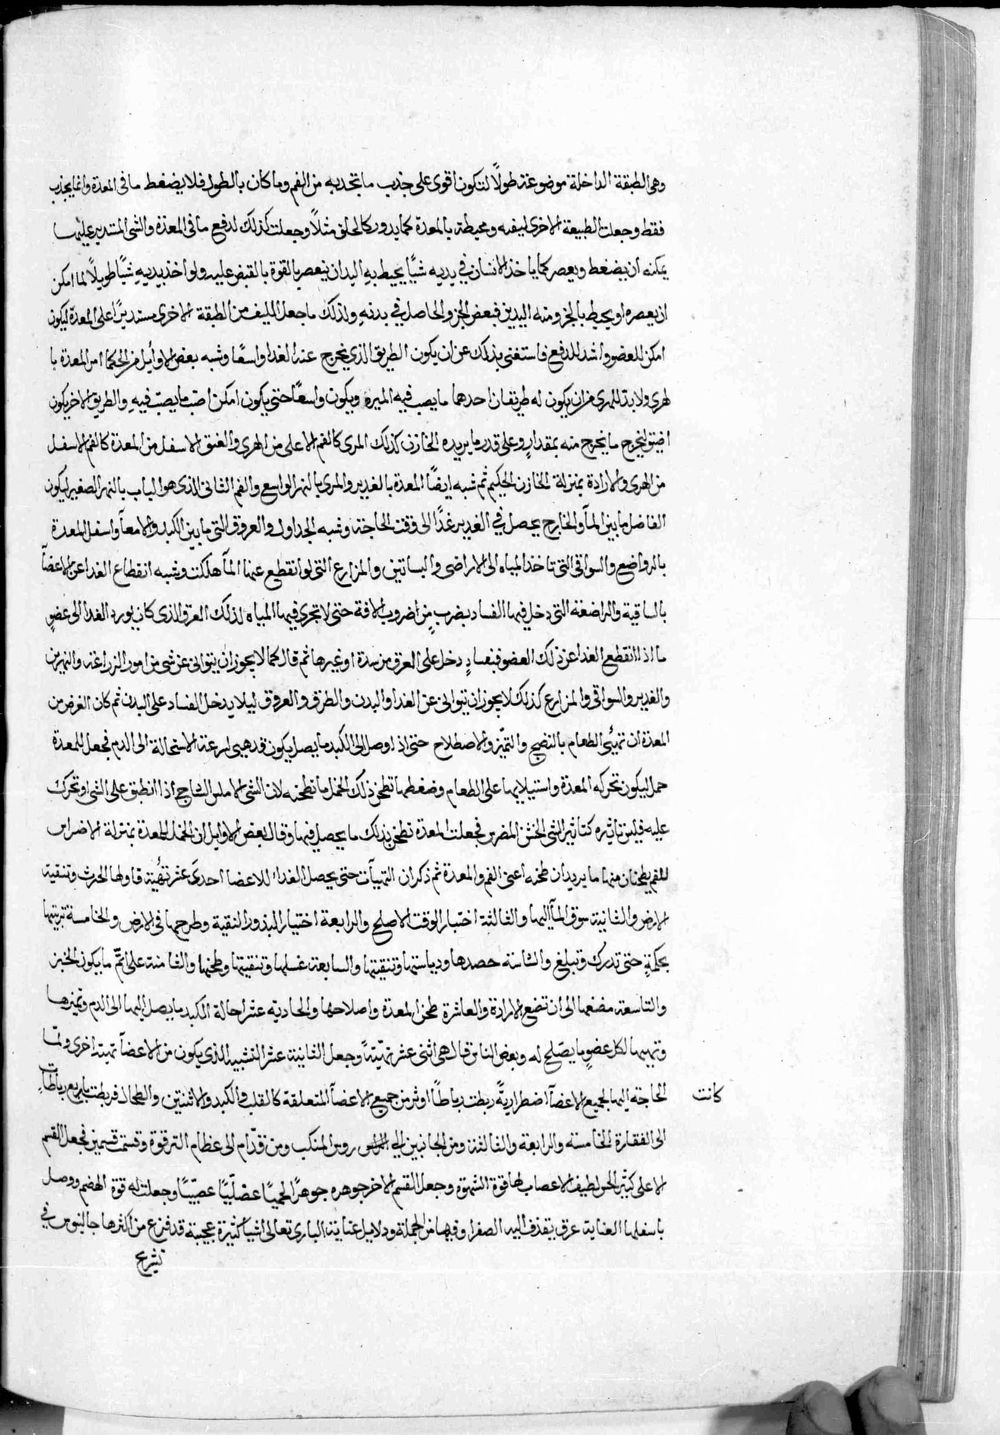 وهى الطبقة الداخلة موضوعة طولًا لتكون اقوى على جذب ما تجذبه من الفم وما كان بالطول فلا يضغط ما فى المعدة وانما يجذب
فقط وجعلت الطبيعة الاخرى ليفيه ومحيطة بالمعدة كما يدور كالحلق مثلًا وجعلت كذلك لدفع ما فى المعدة والشى المستدير عليها
يمكنه ان يضغط ويعصر كما ياخذ الانسان فى يديه شيًا يحيط به اليدان فيعصر بالقوة بالقبض عليه ولو اخذ بيديه شيًا طويلًا لما امكن
ان يعصره او يحيط بالجزو منه اليدين فبعض الجزو الحاصل فى بدنه ولذلك ما جعل الليف من الطبقة الاخرى مستديرًا على المعدة ليكون
امكن للعضو واشد للدفع فاستغنى بذلك عن ان يكون الطريق الذى يخرج عنه الغدا واسعًا وشبه بعض الاوايل من الحكما امر المعدة با
لهرى ولا بد للهرى من ان يكون له طريقان احدهما ما يصب فيه الميرة ويكون واسعًا حتى يكون امكن لصب ما يصب فيه والطريق الاخر يكون
اضيق ليخرج ما يخرج منه بمقدار وعلى قدر ما يريده الخازن كذلك المرى كالفم الاعلى من الهرى والعنق الاسفل من المعدة كالفم الاسفل
من الهرى والارادة بمنزلة الخازن الحكيم ثم شبه ايضًا المعدة بالغدير والمرى بالنهر الواسع والفم الثانى الذى هو الباب بالنهر الصغير ليكون
الفاضل ما بين المآ والخارج يحصل فى الغدير غدًا الى وقت الحاجة وشبه الجداول والعروق التى ما بين الكبد والامعآ واسفل المعدة
بالرواضع والسواقى التى تاخذ المياه الى الاراضى والبساتين والمزارع التى لو انقطع عنها المآ هلكت وشبه انقطاع الغدا عن الاعضآ
بالساقية والراضعة التى دخل فيها الفساد بضرب من اضروب الافة حتى لا تجرى فيها المياه لذلك العرق الذى كان يورد الغدا الى عضوٍ
ما اذا انقطع الغدا عن ذلك العضو فبفسادٍ دخل على العرق من سدة او غيرها ثم قال كما لا يجوز ان يتوانى عن شى من امور الزراعة والنهرين
والغدير والسواقى والمزارع كذلك لا يجوز ان يتوانى عن الغدا والبدن والطرق والعروق ليلا يدخل الفساد على البدن ثم كان الغرض من
المعدة ان تهيّى الطعام بالنضج والتميز والاصطلاح حتى اذا وصل الى الكبد ما يصل يكون قد هيى لسرعة الاستحالة الى الدم فجعل للمعدة
خمل ليكون تحركه المعدة واستيلايها على الطعام وضغطها تطحن ذلك الخمل ما تطحنه لان الشى الاملس الساذج اذا انطبق على الشى او تحرك
عليه فليس تاثيره كتاثير الشى الخشن المضرس فجعلت المعدة تطحن بذلك ما يحصل فيها وقال بعض الاوايل ان الخمل للمعدة بمنزلة الاضراس
للفم يطحنان منهما ما يريدان طحنه اعنى الفم والمعدة ثم ذكر ان التهيات حتى يحصل الغدا للاعضا احدى عشر تهيّة فاولها الحرث وتنقية
الارض والثانية سوق المآ اليها والثالثة اختبار الوقت الاصلح والرابعة اختيار البذور النقية وطرحها فى الارض والخامسة تربيتها
بحكمةٍ حتى تدرك وتبلغ والسادسة حصدها ودياستها وتنقيتها والسابعة غسلها وتنقيتها وطحنها والثامنة على اتمّ ما يكون الخبز
والتاسعة مضغها الى ان تنضج الارادة والعاشرة طحن المعدة واصلاحها والحاديه عشر احالة الكبد ما يصل اليها الى الدم وتميزها
وتهييها لكل عضوٍ ما يصلح له وبعض الناس قال هى اثنى عشر تهيّةً وجعل الثانية عشر التشبيه الذى يكون من الاعضآ تهية اخرى ولما
كانت الحاجة اليها لجميع الاعضآ اضطراريةً ربطت رباطًا اوثر من جميع الاعضآ المتعلقة كالقلب والكبد والانثنين والطحال فربطت باربع رباطات
الى الفقارة الخامسه والرابعة والثالثة ومن الجانبين الى روس المنكب ومن قدّام الى عظام الترقوة وقسمت قسمين فجعل القسم
الاعلى كثير الحس لطيف الاعصاب لها قوة الشهوة وجعل القسم الاخر جوهره جوهرًا لحميًا عضليًا عصبيًا وجعلت له قوة الهضم ووصل
باسفلها العناية عرق يقذف اليه الصفرا وفيها من الجملة ودلايل عناية البارى تعالى اشيا كثيرة عجيبة قد فرغ من اكثرها جالينوس فى
تشريح